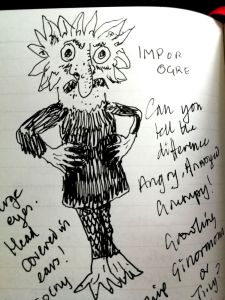 IMPOR
OGRE
Can you
tell the
difference
Angry. Annoyed
Grumpy!
Growling
Ginormous
or
Tiny?
eyes.
Head
covered in
ears!